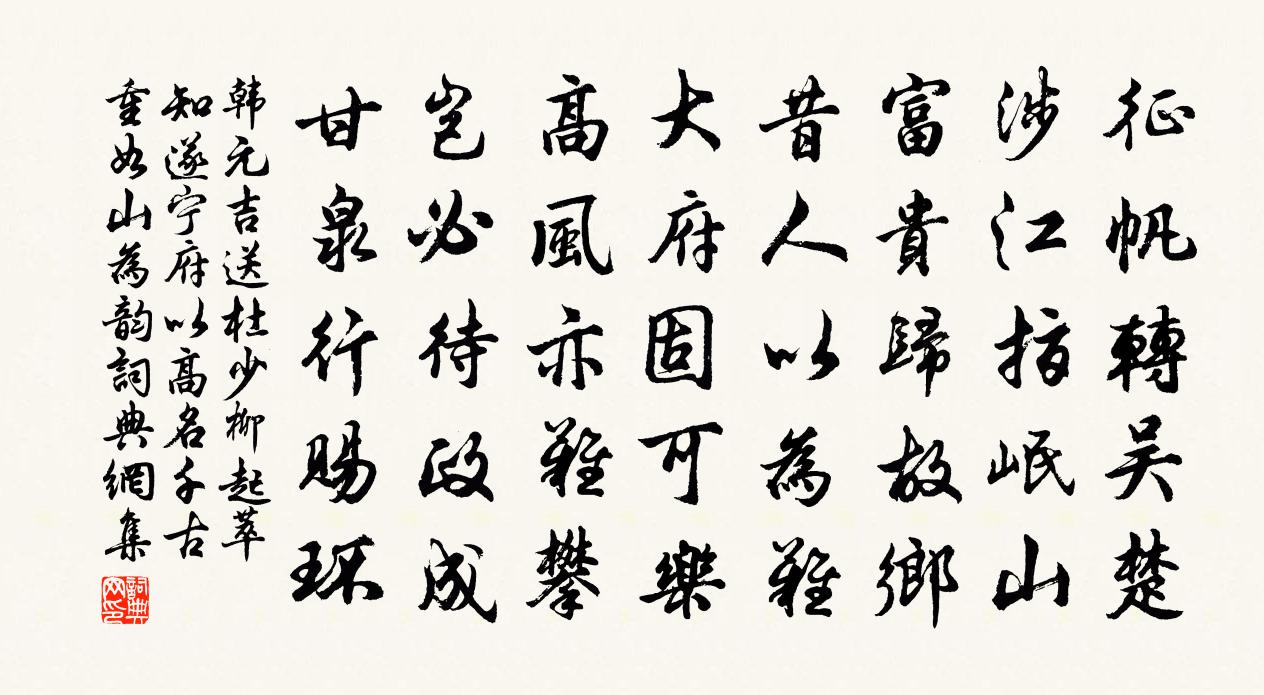 征帆轉吴楚
涉江指岷山
富貴歸故鄉
昔人以為難
大府固可樂
高風亦難攀
岂必待政成
甘泉行賜环
韩元吉送杜少卿起莘
知遂宁府以高名千古
重如山為韵詞典網集
詞典
网印